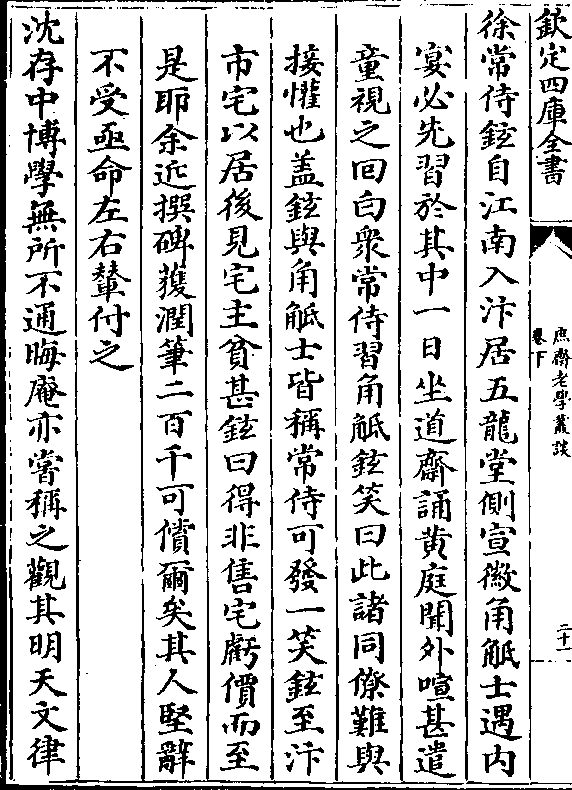 欽定四庫全書
庶齋老學叢談
卷下
二十一
徐常侍鉉自江南入汴居五龍堂側宣徽角觝士遇内
宴必先習於其中一日坐道齋誦黄庭聞外喧甚遣
童視之回白衆常侍習角觝鉉笑曰此諸同僚難與
接懽也盖鉉與角觝士皆稱常侍可發一笑鉉至汴
市宅以居後見宅主貧甚鉉曰得非售宅虧價而至
是耶余近撰碑獲潤筆二百千可償爾矣其人堅辭
不受亟命左右輦付之
沈存中博學無所不通晦庵亦嘗稱之觀其明天文律